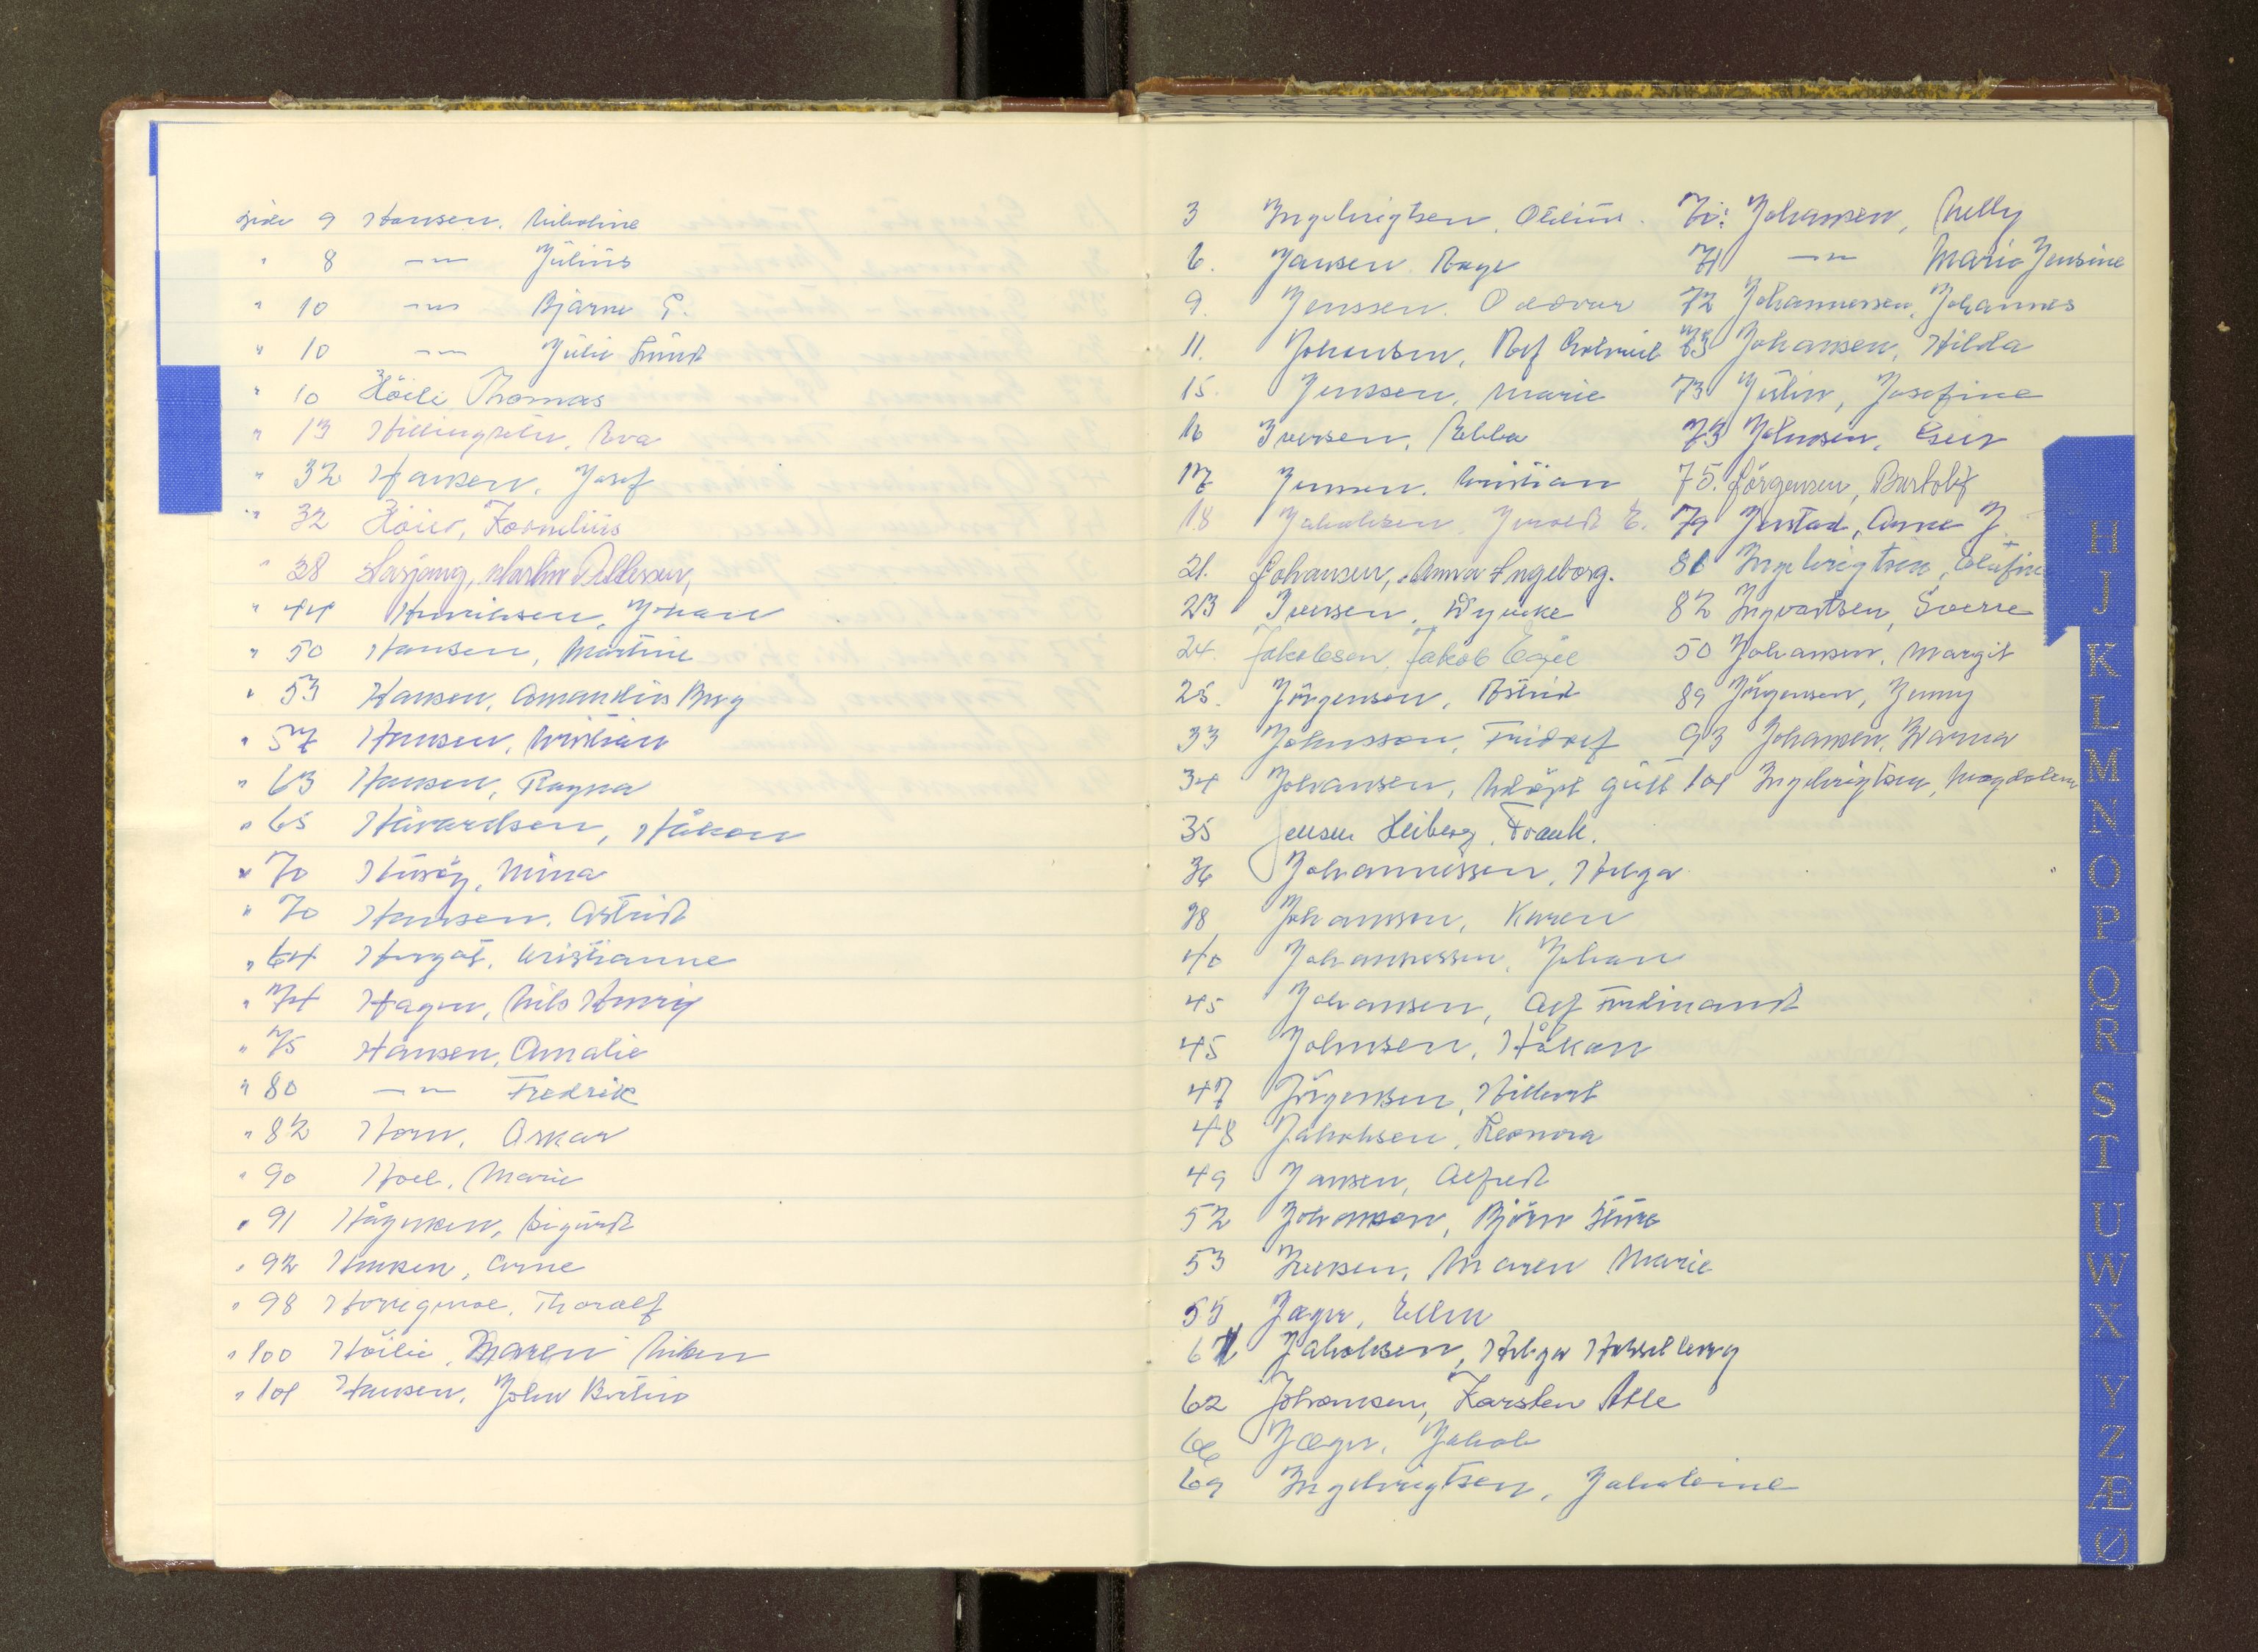 side 9 Hansen, Nikoline
" 8 —"— Julius
" 10 —"— Bjarne E.
" 10 —"— Julie Lund
" 10 Höili Thomas
" 13 Hillingseter, Eva
" 32 Hansen, Josef
" 32 Höier, Kornelius
" 38 Martin Pettersen,
" 44 Henriksen, Johan
" 50 Hansen, Martine
" 53 Hansen, Amandus Berg
" 57 Hansen, Kristian
" 63 Hansen, Ragna
" 65 Håvardsen, Håkon
" 70 Husöy, Mina
" 70 Hansen, Astrid
" 64 Kristianne
" 74 Hagen, Nils Henrik
" 75 Hansen, Amalie
" 80 —"— Fredrik
" 82 Horn, Oskar
" 90 Hoel, Marie
" 91 Hågensen, Sigurd
" 92 Hansen, Arne
" 98 Thoralf
" 100 Höilie, Maren
" 101 Hansen, John
3 Ingebrigtsen,
6. Jansen Aage
9. Jenssen. Oddvar
11. Johansen, Alf
15. Jenssen, Marie
16 Iversen, Ebba
17 Jensen. Kristian
18 Jakobsen, E.
21. Johansen, Anna Ingeborg.
23 Iversen, Wyncke
24. Jakobsen, Jakob Egil
25. Jörgensen, Astrid
33 Johnsson, Fridolf
34 Johansen, Adopt gutt
35 Jensen Heiberg, Frank.
36 Johannessen, Helga
38 Johansen, Karen
40 Johannessen, Johan
45 Johansen, Alf Ferdinand
45 Johnsen, Håkon
47 Jörgensen, Hilbert
48 Jakobsen, Leonora
49 Jansen, Alfred
52 Johansen, Björn Sture
53 Iversen, Maren Marie
55 Jager, Ellen
61 Jakobsen, Helga Hesselberg
62 Johansen, Karsten Atle
66 Jæger, Jakob
69 Ingebrigtsen, Jakobine
71: Johansen, Nelly
71 —"— Marie Jensine
72 Johannessen, Johannes
73 Johansen, Hilda
73 Julin, Josefine
73 Johnsen, Geir
75. Jörgensen, Bertolf
79 Jerstad, Anne J.
81 Ingebrigtsen, Olufine
82 Ingvartsen, Sverre
50 Johansen, Margit
89 Jörgensen, Jenny
93 Johansen, Wanna
101 Ingebrigtsen, Magdalena
H
J
K
L
M
N
O
P
Q
R
S
T
U
W
X
Y
Z
Æ
Ø